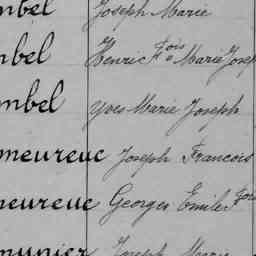 mbel Joseph Marie
mbel Henri Fois Marie Josep
mbel Yves Marie Joseph
meureuc Joseph Francois
meureuc Georges Emile Fois
munier Joseph Marie